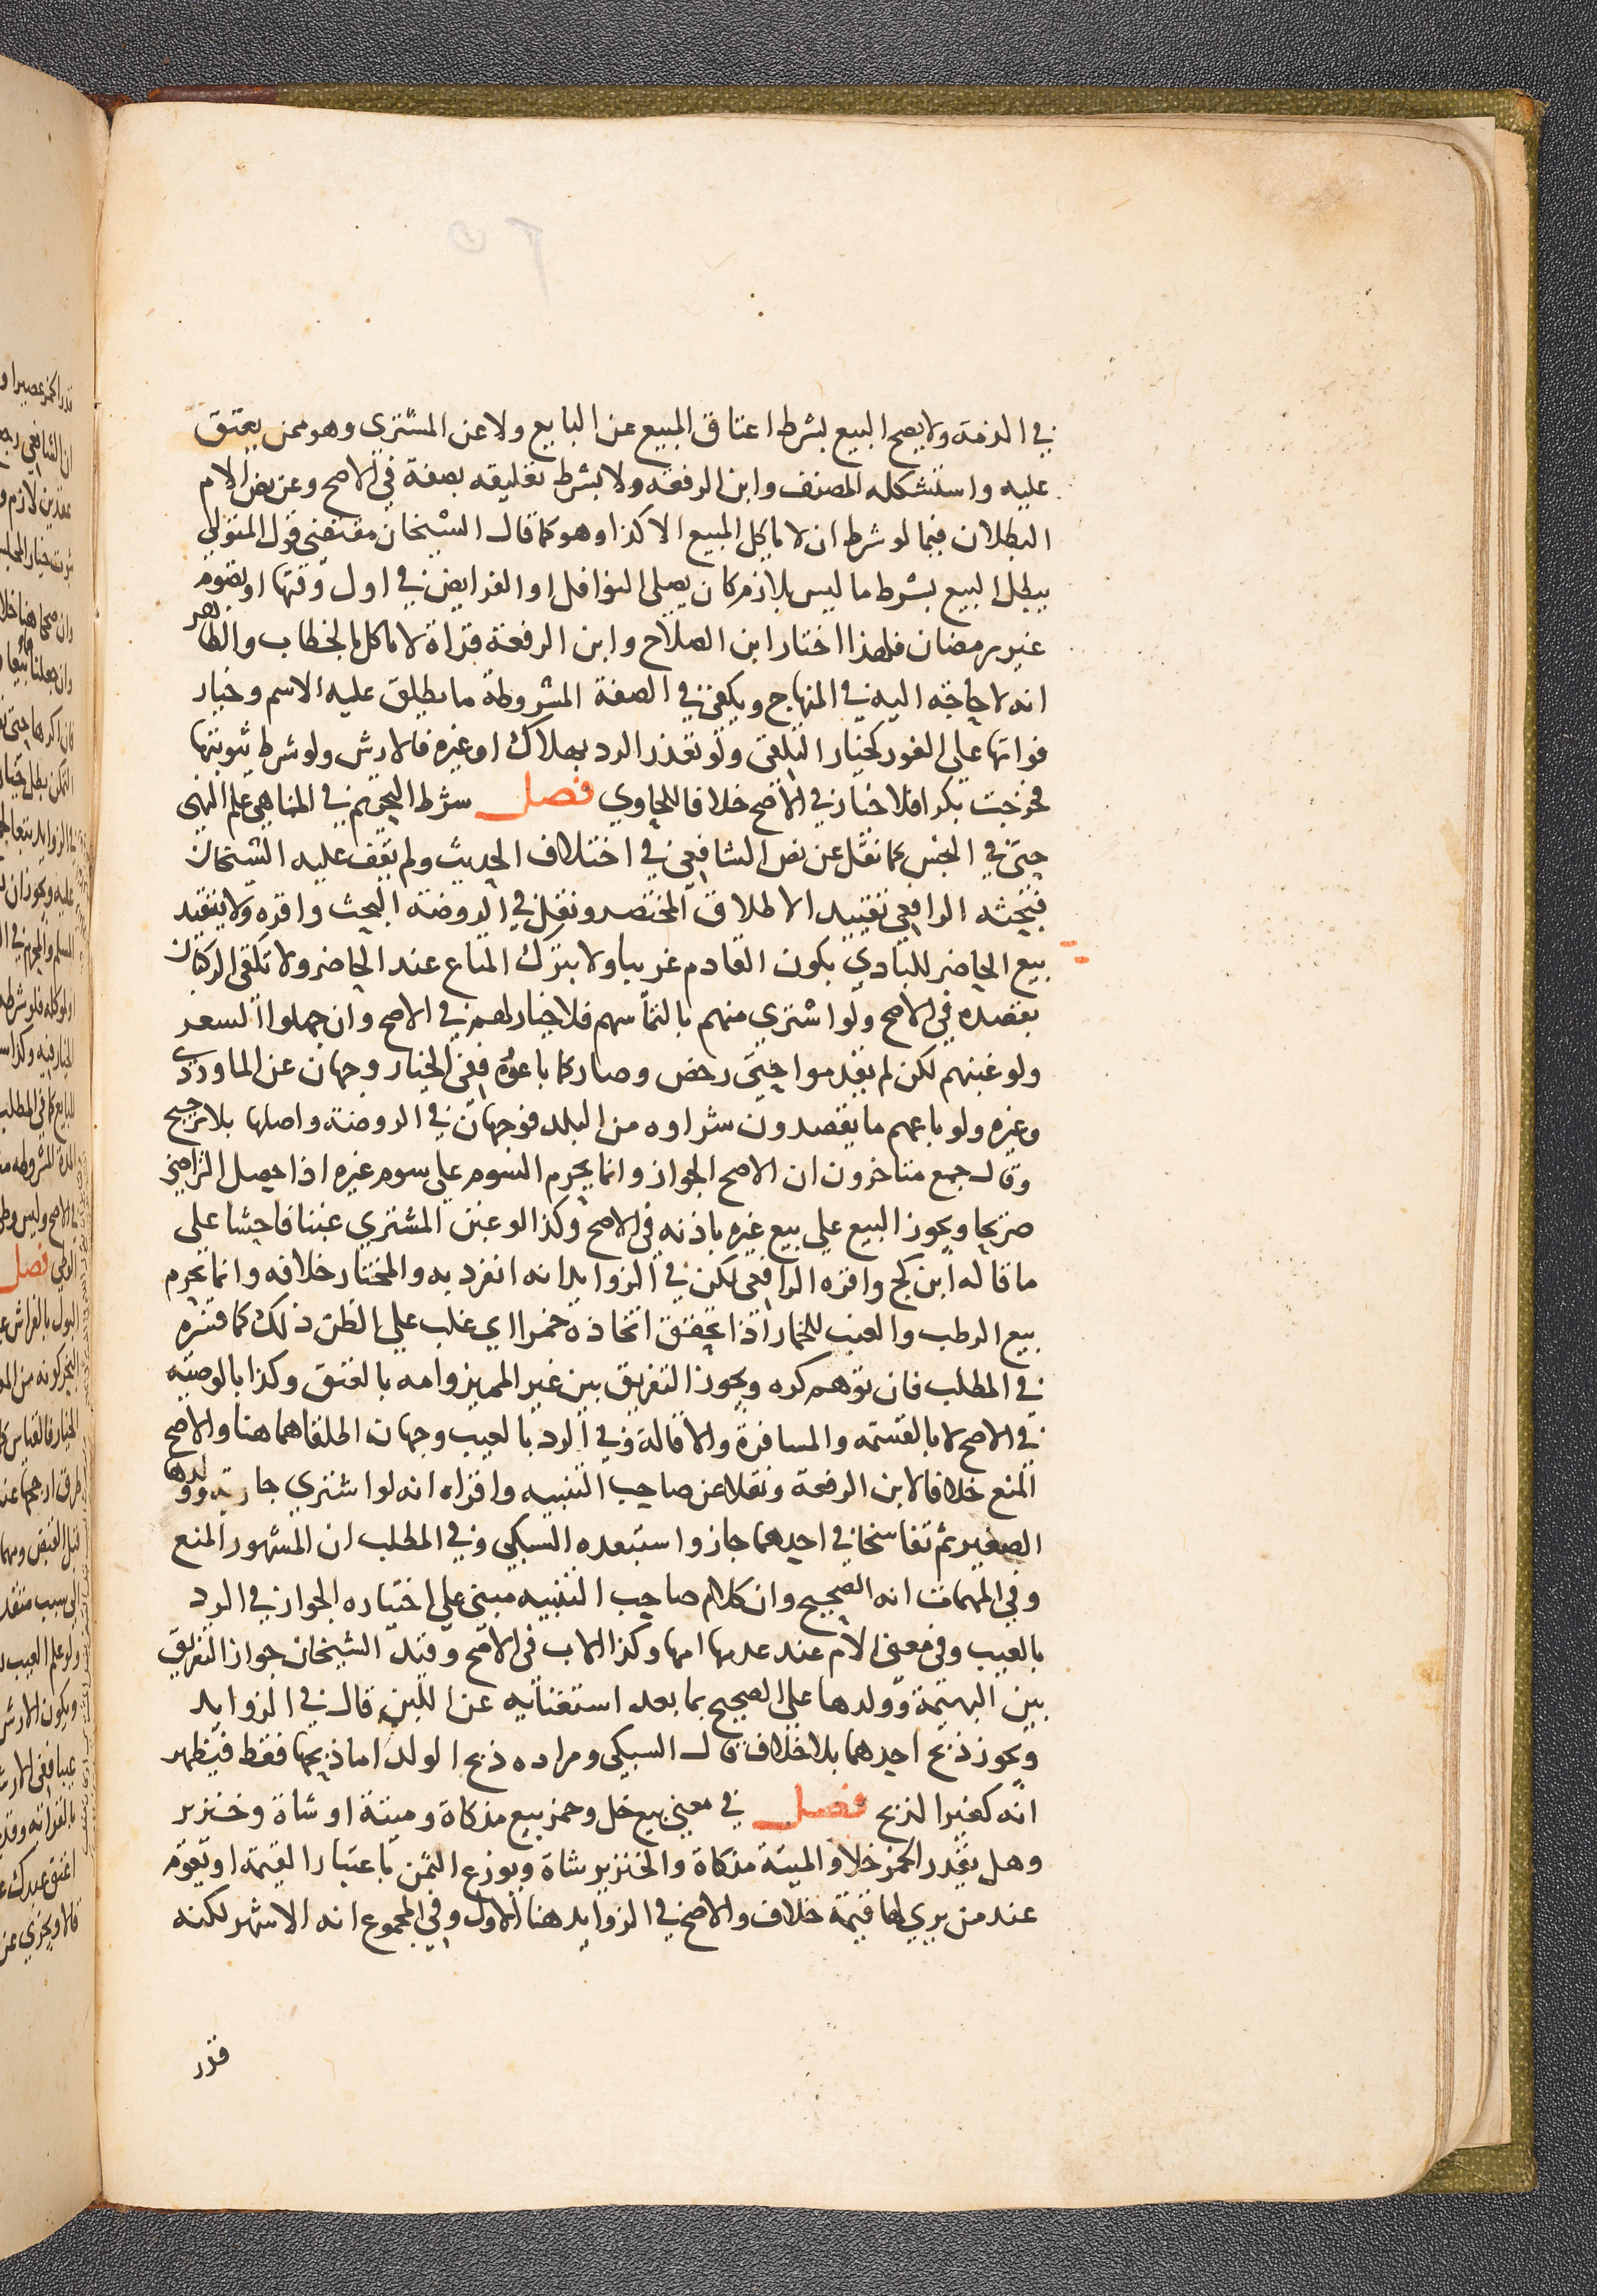 في الذمة ولا يصح البيع بشرط اعتاق المبيع عن البايع ولا عن المشتري وهو ممن يعتق
عليه واستشكله المصنف وابن الرفعه ولا بشرط تعليقه بصفة في الاصح وعن نص الام
البطلان فيما لو شرط ان لا ياكل المبيع الا كذا وهو كما قال الشيخان مقتضى قول المتولي
يبطل البيع بشرط ما ليس بلازم كان يصلي النوافل او الفرايض في اول وقتها او يصوم
غير رمضان فلهذا اختار ابن الصلاح وابن الرفعة قراة لا تاكل بالخطاب والظاهر
انه لا حاجة اليه في المنهاج ويكفي في الصفة المشروطة ما يطلق عليه الاسم وخيار
فواتها على الفور كخيار التلقي ولو تعذر الرد بهلاك او غيره فالارش ولو شرط ثيوبتها
فخرجت بكرا فلا خيار في الاصح خلافا للحاوي فصل شرط التحريم في المناهي علم النهي
حتى في النجش كما نقل عن نص الشافعي في اختلاف الحديث ولم يقف عليه الشيخان
فبحثه الرافعي تقييد الاطلاق المختصر ونقل في الروضة البحث واقره ولا يتقيد
بيع الحاضر للبادي بكون القادم غريبا ولا بترك المتاع عند الحاضر ولا تلقى الركبان
بقصده في الاصح ولو اشتري منهم بالتماسهم فلا خيار لهم في الاصح وان جهلوا السعر
ولو غبنهم لكن لم يقدموا حتى رخص وصار كما باعوه ففي الخيار وجهان عن الماوردي
وغيره ولو باعهم ما يقصدون شراوه من البلد فوجهان في الروضة واصلها بلا ترجيح
وقال جمع متاخرون ان الاصح الجواز وانما يحرم السوم على سوم غيره اذا حصل التراضي
صريحا ويجوز البيع على بيع غيره باذنه في الاصح وكذا لو غبن المشتري غبنا فاحشا على
ما قاله ابن كج واقره الرافعي لكن في الزوايد انه انفرد به والمختار خلافه وانما يحرم
بيع الرطب والعنب للخمار اذا تحقق اتخاذه خمرا اي غلب على الظن ذلك كما فسره
في المطلب فان توهم كره ويجوز التفريق بين غير المميز وامه بالعتق وكذا بالوصية
في الاصح لا بالقسمه والمسافرة والاقالة وفي الرد بالعيب وجهان اطلقاهما هنا والاصح
المنع خلافا لابن الرفعة ونقلا عن صاحب التنبيه واقراه انه لو اشتري جارية وولدها
الصغير ثم تفاسخا في احدهما جاز واستبعده السبكي وفي المطلب ان المشهور المنع
وفي المهمات انه الصحيح وان كلام صاحب التنبيه مبني على اختياره الجواز في الرد
بالعيب وفي معنى الام عند عدمها امها وكذا الاب في الاصح وقيد الشيخان جواز التفريق
بين البهيمة وولدها على الصحيح بما بعد استغنائه عن اللبن قال في الزوايد
ويجوز ذبح احدهما بلا خلاف قال السبكي ومراده ذبح الولد اما ذبحها فقط فيظهر
انه كغير الذبح فصل في معنى بيع خل وخمر بيع مذكاة وميتة او شاة وخنزير
وهل يقدر الخمر خلا والميتة مذكاة والخنزير شاة ويوزع الثمن باعتبار القيمة او يقوم
عند من يري لها قيمة خلاف والاصح في الزوايد هنا الاول وفي المجموع انه الاشهر لكنه
قدر